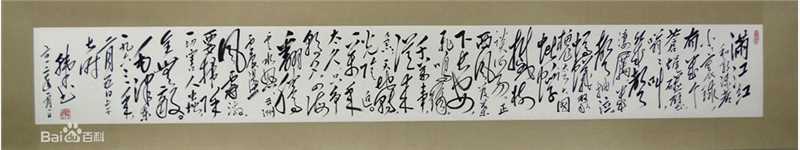 满江红
和郭沫若
小小寰球
有几个
苍蝇碰壁
嗡嗡叫
几声
凄厉几
声抽泣
蚂蚁缘槐
夸大国
蚍蜉
撼树
谈何易正
西风落叶
下长安
飞鸣镝
多少事
从来急
天地转
光阴迫
一万年
太久只争
朝夕四海
翻腾
云水怒五洲
震荡
风雷激
要扫除
一切害人虫
全无敌
毛泽东
一九六三年
Bai百科